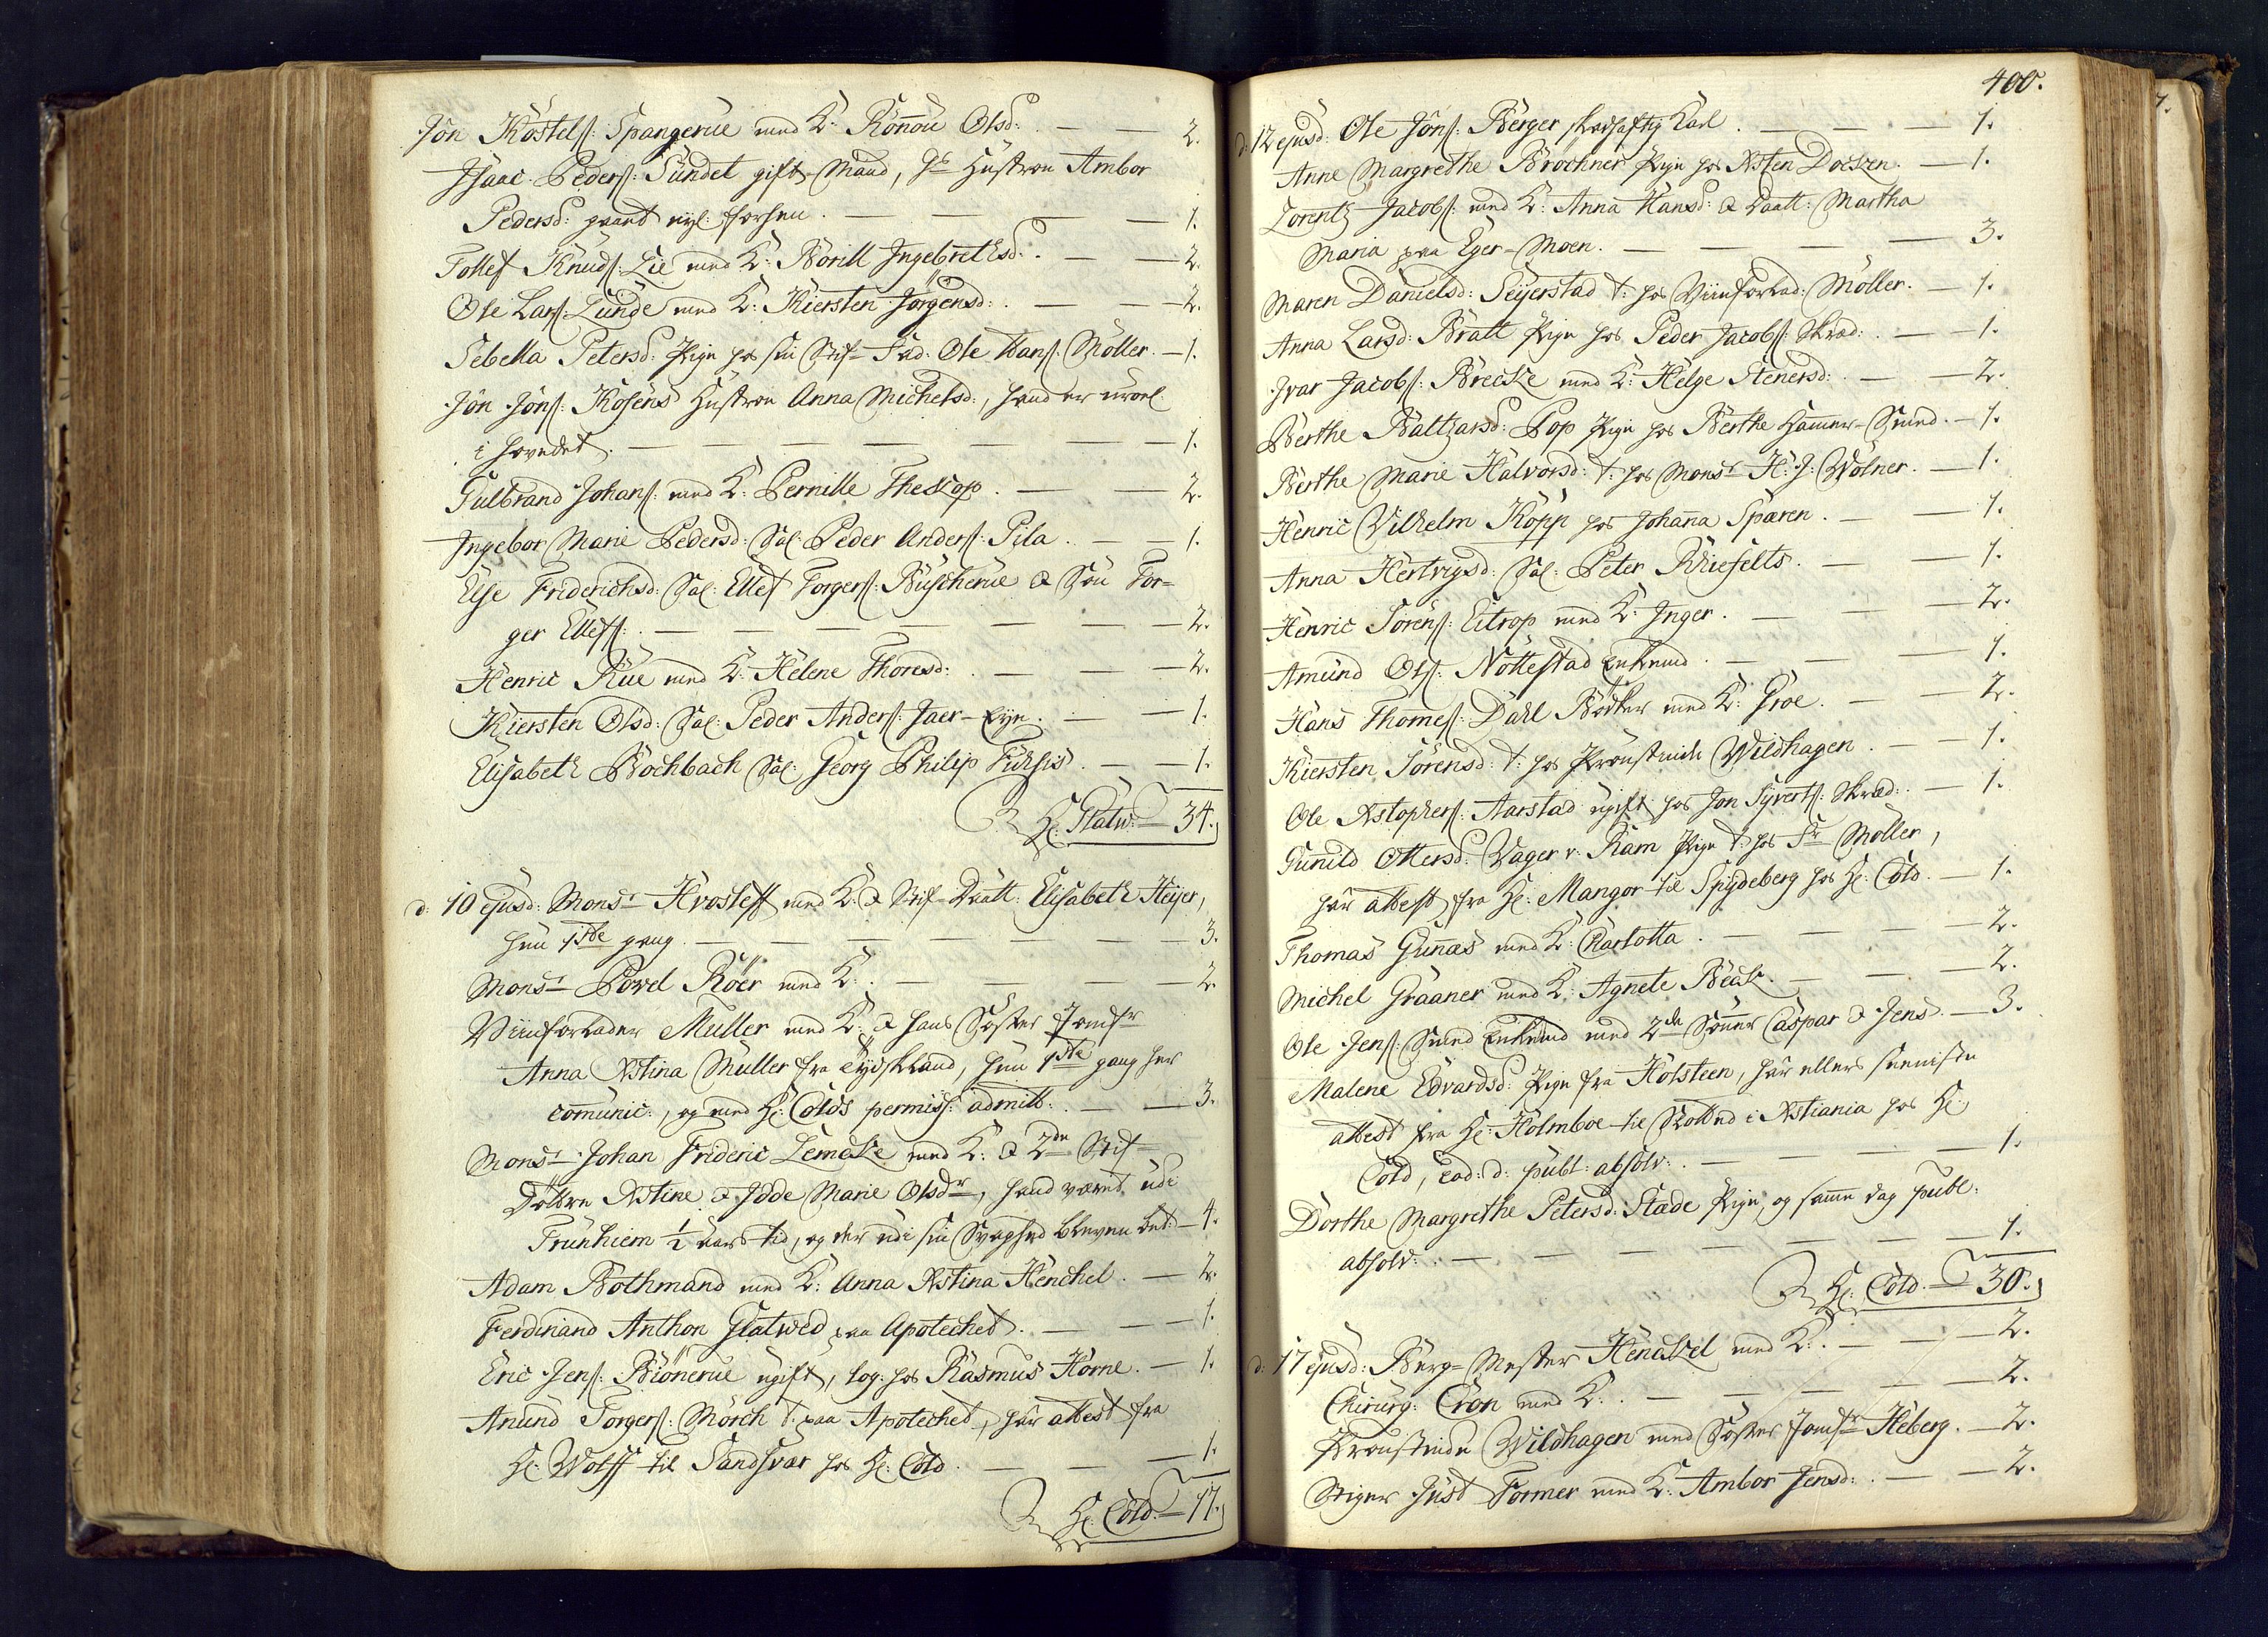 Jön Köstels: Spangerüe med K: Rönnou Olsd: . — — 2.
Isaac Peders: Sündet gift Mand, hs Hüstroe Ambor
Pedersd: gvant nyl: forhen . — — — — 1.
Tollef Knuds: Lie med K: Börill Ingebrethsd: . — — 2.
Ole Lars: Lünde med K: Kiersten Jørgensd: . — — 2.
Sebella Petersd: Pige hos sin Stif-Fad. Ole Hans: Möller. — 1.
Jön Jöns: Kosens Hüstroe Anna Michelsd:, hand er uroel:
i hovedet. — — — — — — 1.
Gulbrand Johans: med K: Pernille Theskop . — — 2.
Ingebor Marie Pedersd: Sal: Peder Anders: Pila . — — 1.
Else Friderichsd: Sal: Ellef Torgers: Büscherüe & Sön Tor-
ger Ellefs: . — — — — — — 2.
Henric Rüe med K: Helene Thoresd: . — — — 2.
Kiersten Olsd: Sal: Peder Anders: Jaer-Eye . — — 1.
Elisabeth Bochbach Sal: Georg Philip Füchsis . — — 1.
Hr: Statw: — 34.
d: 10 ejusd: Monsr Hvosleff med K: & Stif-Daatt: Elisabeth Heyer,
hün 1ste gang . — — — — — — 3.
Monsr Povel Röer med K: . — — — — 2.
Viinforlader Müller med K: & hans Søster Jomfr
Anna Xstina Müller fra Tydskland, hün 1ste gang her
commünic:, og med Hr: Colds permiss: admitt: . — — 3.
Monsr Johan Frideric Lemcke med K: & 2de Stif-
Döttre Xstine & Jode Marie Olsdr, hand været üdi
Trünhiem 1/2 Aars tid, og der udi sin Svaghed bleven bet: — 4.
Adam Bothmand med K: Anna Xstina Henchel . — 2.
Ferdinand Anthon Statwed paa Apotechet . — — 1.
Eric Jens: Biönerüe ugift, log: hos Rasmus Horne . — 1.
Anund Torgers: Mörch t: paa Apotechet, har attest fra
Hr: Wolff til Sandsvær hos Hr: Cold . — — — 1.
Hr: Cold. — 17.
400.
d: 12 ejusd: Ole Jöns: Berger skadhaftig Karl . — — — 1.
Anne Margrethe Brochner Pige hos Xsten Dorsen. — 1.
Lorentz Jacobs: med K: Anna Hansd: & Daatt: Martha
Maria paa Eger-Moen. — — — — 3.
Maren Danielsd: Seyerstad t: hos Viinforlad: Möller. — 1.
Anna Larsd: Bratt Pige hos Peder Jacobs: Skræd: . — 1.
Ivar Jacobs: Brecke med K: Helge Stenersd: . — — 2.
Berthe Baltzarsd: Pop Pige hos Berthe Hammer-Smed. — 1.
Berthe Marie Halvorsd: t: hos Monsr H: J: Wolner . — 1.
Henric Vilhelm Köpp hos Johana Sparen . — — 1.
Anna Hertvigsd: Sal: Peter Kriefelts . — — 1.
Henric Sörens: Eitrop med K: Inger . — — — 2.
Amünd Ols: Nöttestad Enkemd . — — — 1.
Hans Thomes: Dahl Bødker med K: Groe . — — 2.
Kiersten Sörensd: t: hos Provstinde Wildhagen . — — 1.
Ole Xstophers: Aarstad ugift hos Jon Syverts: Skræd: . — 1.
Gunild Ottersd: Vager v: Ram Pige t: hos Sr Möller,
har attest fra Hr: Mangor til Spydeberg hos Hr: Cold . — 1.
Thomas Günæs med K: Charlotta . — — — 2.
Michel Graaner med K: Agnete Beate . — — — 2.
Ole Jens: Smed Enkemd med 2de Sönner Caspar & Jens — 3.
Malene Edvardsd: Pige fra Holsteen, har ellers seeniste
attest fra Hr: Holmboe til Slottet i Xstiania hos Hr:
Cold, Ead: d: publ: absolv: . — — — — 1.
Dorthe Margrethe Petersd: Stade Pige, og samme dag publ:
absolv: . — — — — — — 1.
Hr: Cold. — 30.
d: 17 ejusd: Berg-Mester Henckel med K: . — — 2.
Chirurg: Cron med K: . — — — — 2.
Provstinde Wildhagen med Søster Jomfr Heberg. — 2.
Stiger Jüst Former med K: Ambor Jensd: . — — 2.